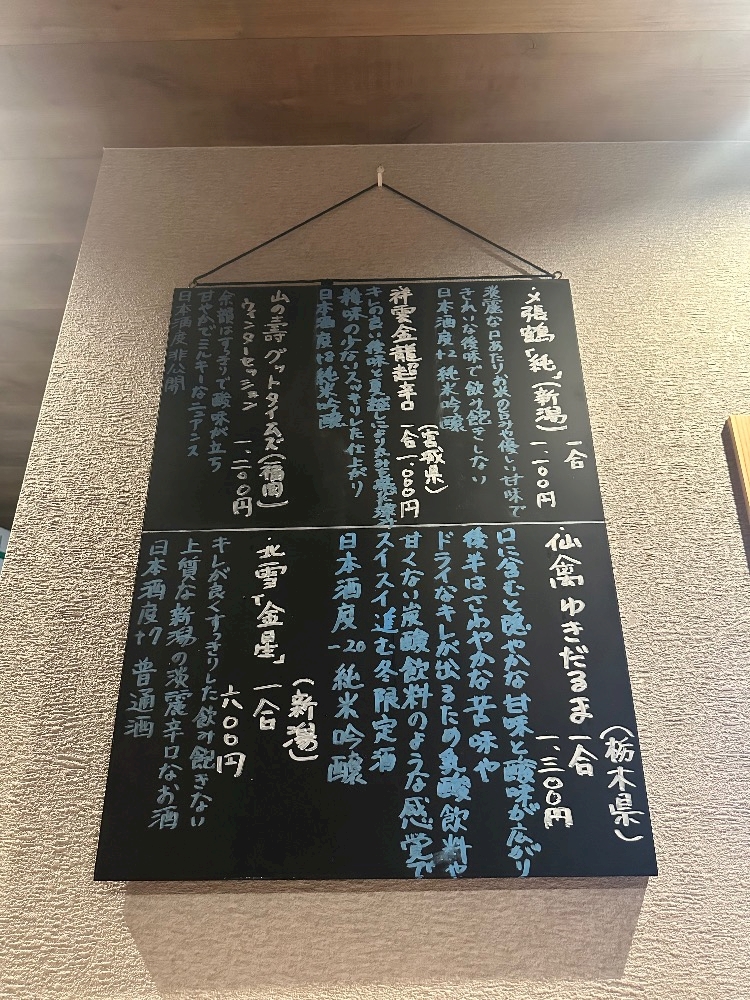 ・〆張鶴「純」(新潟)
一合
一、一〇〇円
淡麗な口あたりお米の旨みや優しい甘味で
きれいな後味で飲み飽きしない
日本酒度+2 純米吟醸
・祥雲金龍超辛口
(宮城県)
一合一、〇〇〇円
キレの良い後味
雑味の少ないスッキリした仕上がり
純米吟醸
山の壽 グッドタイムズ(福岡)
ウィンターセッション
一、二〇〇円
余韻はすっきりで酸味が立ち
甘やかでミルキーなニュアンス
日本酒度非公開
・仙禽ゆきだるま
(栃木県)
一合
一、三〇〇円
口に含むと穏やかな甘味と酸味が広がり
後半はさわやかな苦味や
ドライなキレが出るため乳酸飲料や
甘くない炭酸飲料のような感覚で
スイスイ進む冬限定酒
日本酒度-20 純米吟醸
・北雪「金星」
(新潟)
一合
六〇〇円
キレが良くすっきりした飲み飽きない
上質な新潟の淡麗辛口なお酒
日本酒度+7 普通酒